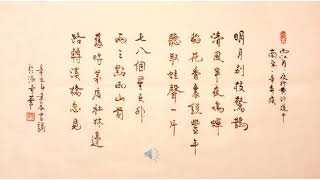 西江月 夜行黄沙道中
南宋 辛棄疾
明月別枝驚鵲
清風半夜鳴蟬
稻花香裏說豐年
聽取蛙聲一片
七八個星天外
兩三點雨山前
舊時茅店社林邊
路轉溪橋忽見